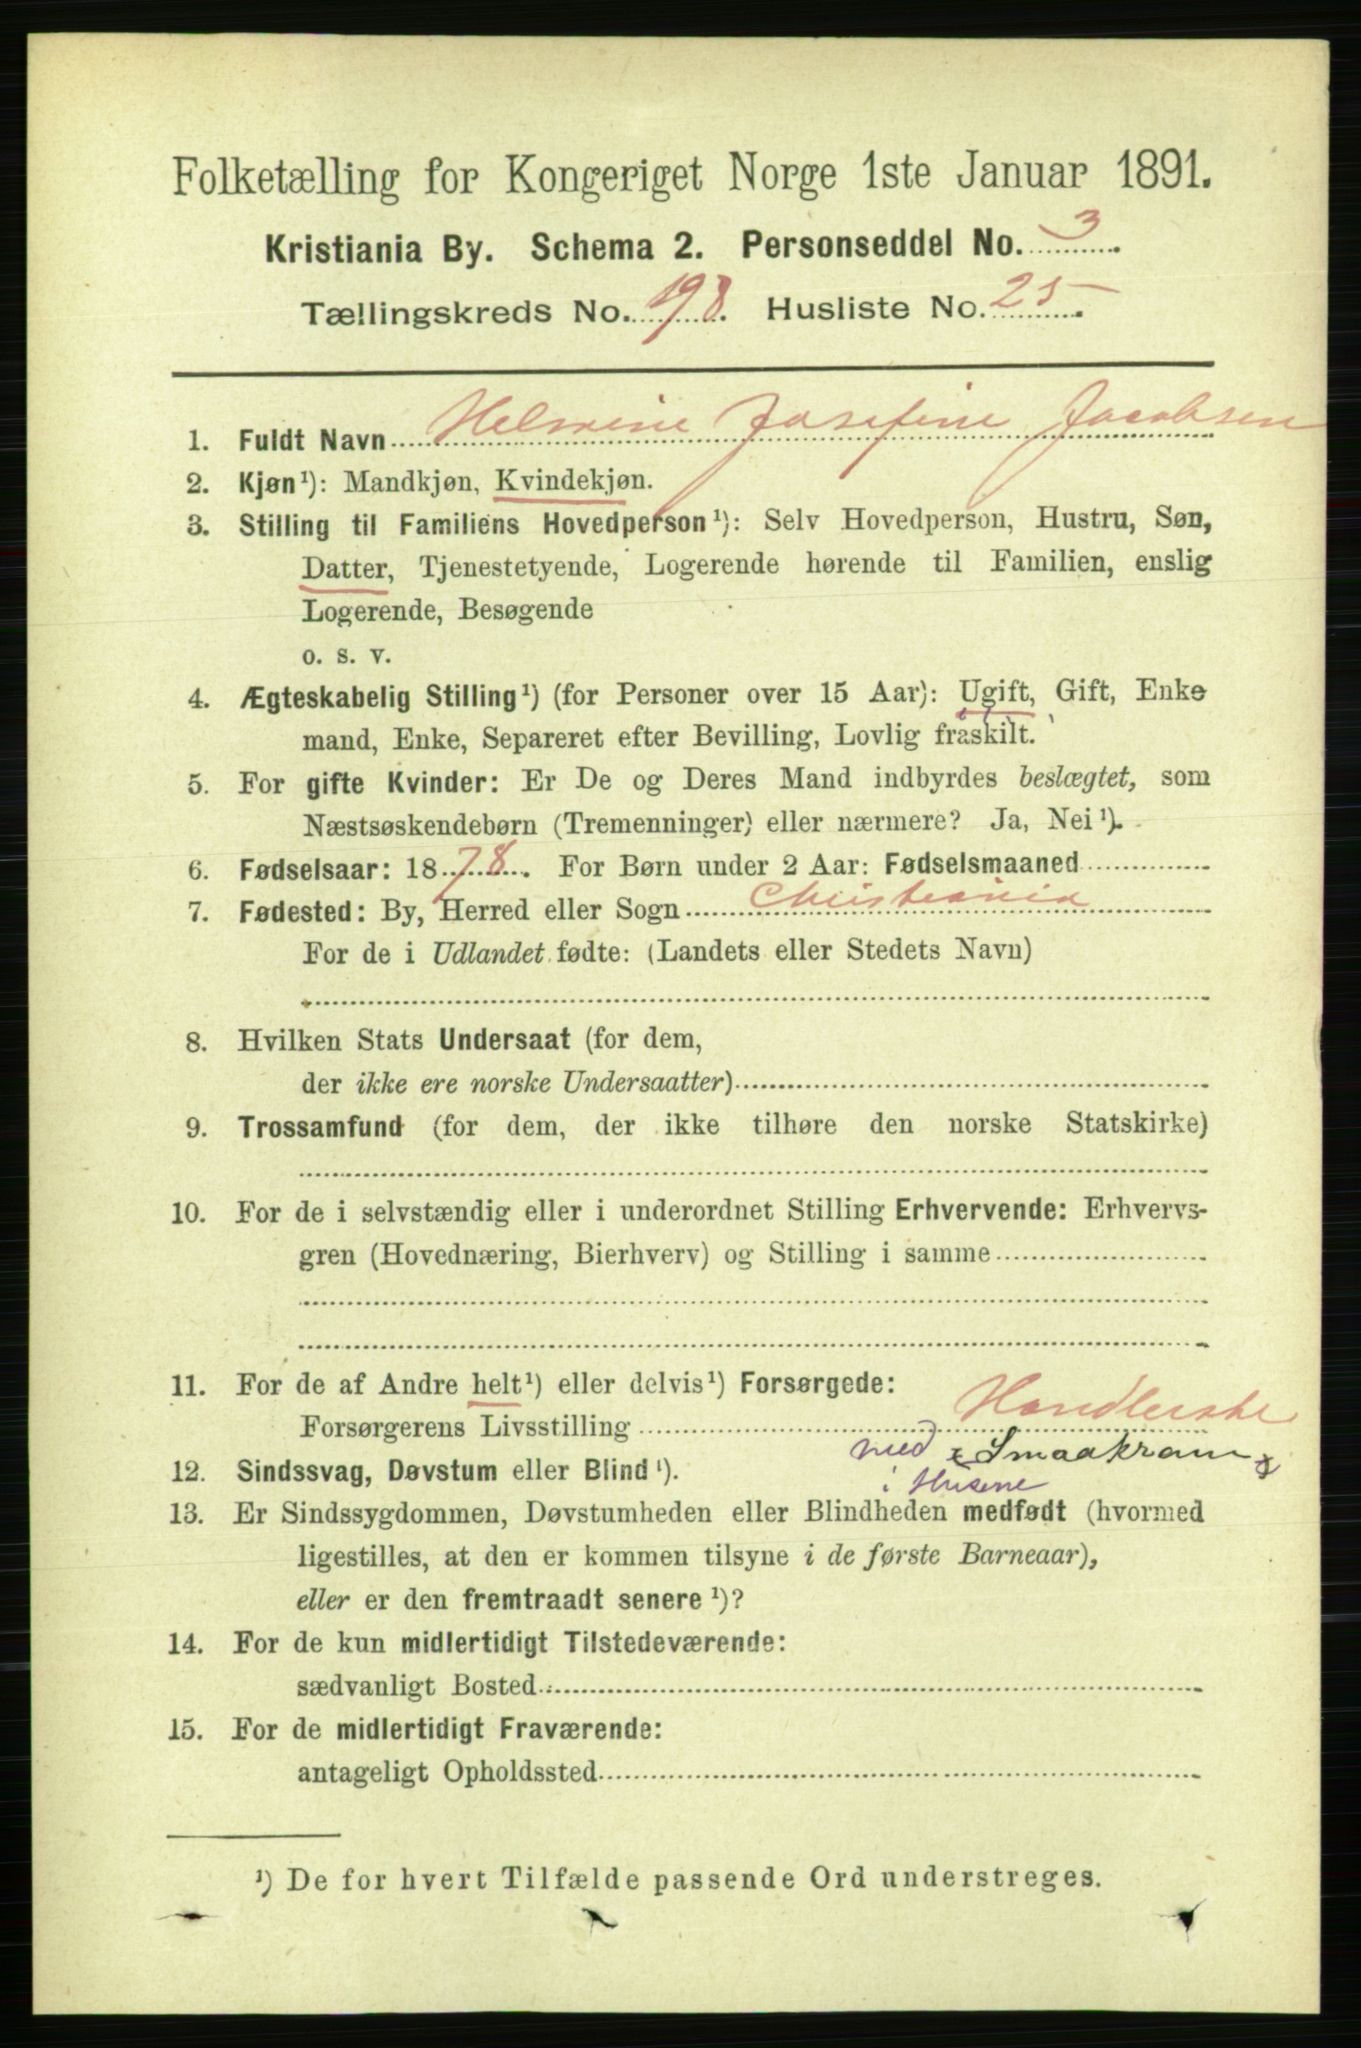 Folketælling for Kongeriget Norge 1ste Januar 1891.
Kristiania By. Schema 2. Personseddel No. 3.
Tællingskreds No. 198. Husliste No. 25.
1. Fuldt Navn Helmine Josefine Jacobsen
2. Kjøn¹): Mandkjøn, Kvindekjøn.
3. Stilling til Familiens Hovedperson¹): Selv Hovedperson, Hustru, Søn,
Datter, Tjenestetyende, Logerende hørende til Familien, enslig
Logerende, Besøgende
o. s. v.
4. Ægteskabelig Stilling¹) (for Personer over 15 Aar): Ugift, Gift, Enke
mand, Enke, Separeret efter Bevilling, Lovlig fraskilt.
5. For gifte Kvinder: Er De og Deres Mand indbyrdes beslægtet, som
Næstsøskendebørn (Tremenninger) eller nærmere? Ja, Nei¹).
6. Fødselsaar: 1878. For Børn under 2 Aar: Fødselsmaaned
7. Fødested: By, Herred eller Sogn Christiania
For de i Udlandet fødte: (Landets eller Stedets Navn)
8. Hvilken Stats Undersaat (for dem,
der ikke ere norske Undersaatter)
9. Trossamfund (for dem, der ikke tilhøre den norske Statskirke)
10. For de i selvstændig eller i underordnet Stilling Erhvervende: Erhvervs-
gren (Hovednæring, Bierhverv) og Stilling i samme
11. For de af Andre helt¹) eller delvis¹) Forsørgede:
Forsørgerens Livsstilling Handlerske
med Smaakram
12. Sindssvag, Døvstum eller Blind¹).
i Husene
13. Er Sindssygdommen, Døvstumheden eller Blindheden medfødt (hvormed
ligestilles, at den er kommen tilsyne i de første Barneaar),
eller er den fremtraadt senere¹)?
14. For de kun midlertidigt Tilstedeværende:
sædvanligt Bosted
15. For de midlertidigt Fraværende:
antageligt Opholdssted
¹) De for hvert Tilfælde passende Ord understreges.